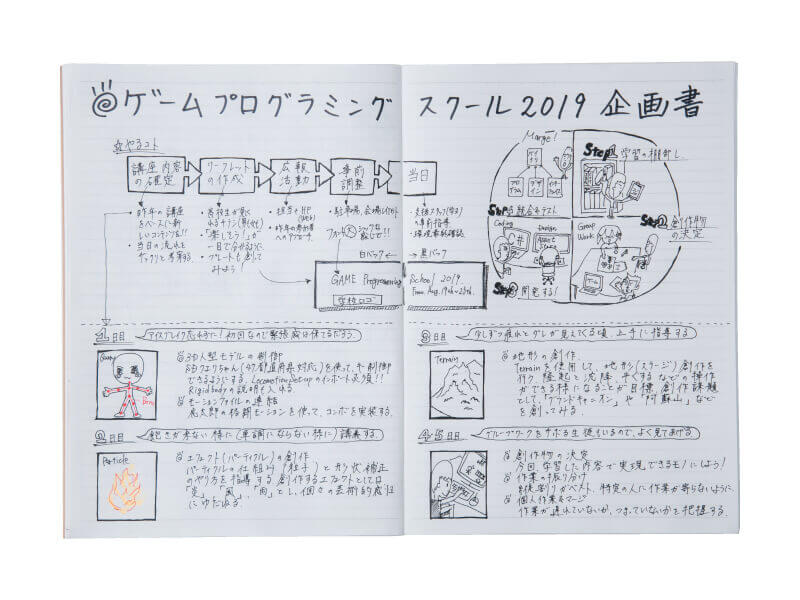 ゲームプログラミング スクール2019 企画書
☆やるコト
講座内容の確定
リーフレットの作成
広報活動
事前調整
当日
・昨年の講座
をベースに新
しいコンテンツを!!
・当日の流れを
ザックリと考える。
・高校生が気に
なるチラシ
「楽しそう!」が
一目で分かるように
・プレートも創って
みよう!
・担当+HP
(Web)
・駐車場、会場レイアウト
・支援スタッフ(学生)
の事前指導
・環境最終確認
白バック
黒バック
GAME Programming
School 2019
From. Aug. 19th~23th.
学校ロゴ
Marge!
プログラム
デザイン
Step1 学習の棚卸し
Step2 創作物
の決定
Group
Work
Step3 開発する!
Coding
Design
Step4 統合&テスト
1日目 アイスブレイク忘れずに!初回なので緊張感は保てるだろう
☆3D人型モデルの制御
8日クエりちゃん(47都道府県対応)を使って、キー制御
できるようにする。LocomotionSetupのインポート必須!!
Rigidbodyの説明も入れる
☆モーションファイルの連結
鹿太郎の格闘モーションを使って、コンボを実装する。
2日目 飽きが来ない様に(単調にならない様に)講義する
Particle
☆エフェクト(パーティクル)の創作
パーティクルの仕組み(粒子)と形状補正
のやり方を指導する。創作するエフェクトとしては
「炎」「風」、「雨」とし、個々の芸術的感性
にゆだねる。
3日目 少しずつ疲れとダレが見えてくる頃。上手に指導する
Terrain
☆地形の創作
Terrainを使用して、地形(ステージ)創作を
行う。隆起と沈降、平くするなどの操作
ができる様になることが目標。創作課題
として、「グランドキャニオン」や「阿蘇山」などを
創ってみる。
4-5日目 グループワークをサボる生徒もいるので、よく見てあげる
☆創作物の決定
今回学習した内容で実現できるモノにしよう!
☆作業の振り分け
役割割りがベスト、特定の人に作業が寄らないように。
☆個人作業&マージ
作業が遅れていないか、つまっていないかを把握する。